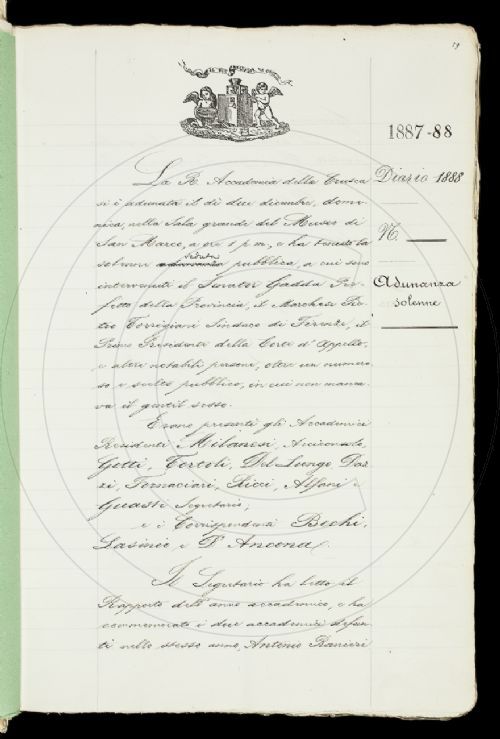 19
1887-88
Diario 1888
N.
Adunanza
solenne
La R. Accademia della Crusca
si è adunata il dì due dicembre, dome-
nica, nella Sala grande del Museo di
San Marco, a ore 1 p.m., e ha tenuto la
solenne adunanza seduta pubblica, a cui sono
intervenuti il Senator Gadda Pre-
fetto della Provincia, il Marchese Pie-
tro Torrigiani Sindaco di Firenze, il
Primo Presidente della Corte d'Appello,
e altre notabili persone, oltre un numero-
so e scelto pubblico, in cui non manca-
va il gentil sesso.
Erano presenti gli Accademici
Residenti Milanesi, Arciconsolo,
Gotti, Tortoli, Del Lungo, Daz-
zi, Fornaciari, Ricci, Alfani e
Guasti Segretario;
e i Corrispondenti Bechi,
Lasinio e D'Ancona.
Il Segretario ha letto il
Rapporto dell'anno accademico, e ha
commemorato i due accademici defun-
ti nello stesso anno, Antonio Ranieri